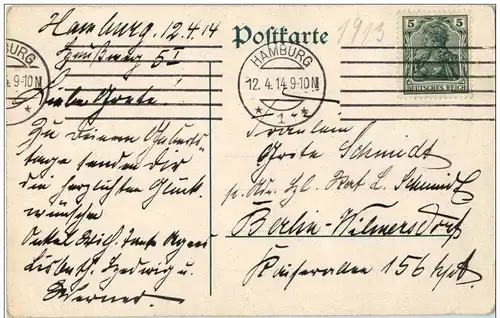 Hamburg, 12.4.14
5I
Liebe Grete!
Zu Deinem Geburts-
tage senden dir
die herzlichsten Glück-
wünsche
Onkel Wilh. Tante Agnes
Lisbeth, Hedwig u.
Werner.
Postkarte
1913
BURG
4. 9-10 N
HAMBURG
12. 4. 14. 9-10 N
* 1 *
5 5
DEUTSCHES REICH
Fräulein
Grete Schmidt
p. Adr. Schmidt
Berlin-Wilmersdorf
Kaiserallee 156 hpt.